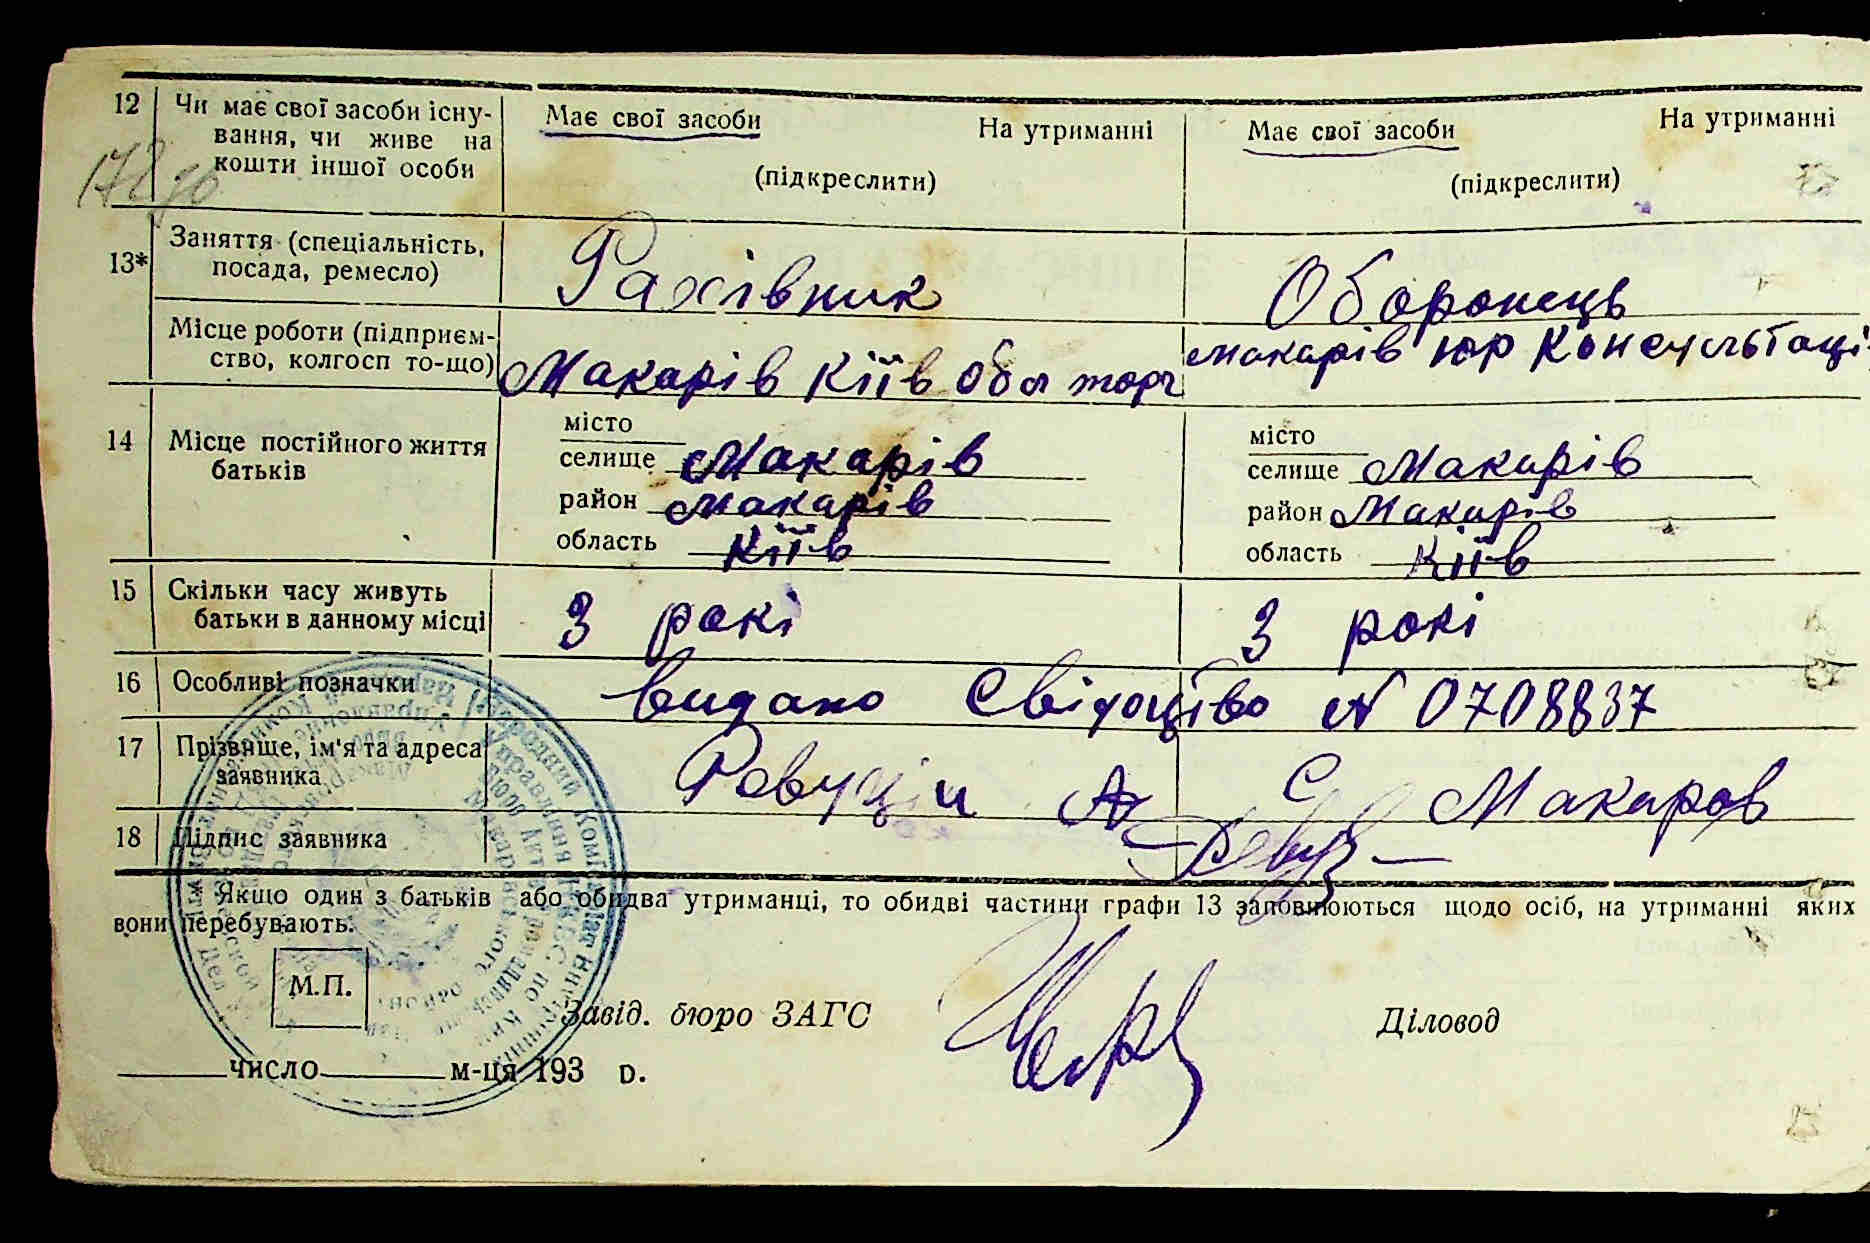 12 Чи має свої засоби існу- Має свої засоби На утриманні Має свої засоби На утриманні
вання, чи живе на
кошти іншої особи (підкреслити) (підкреслити)
13* Заняття (спеціальність, Рахівник Оборонець
посада, ремесло)
Місце роботи (підприєм- Макарів Київ обл торг макарів юр Консультаці
ство, колгосп то-що)
14 Місце постійного життя місто місто
батьків селище Макарів селище Макарів
район Макарів район Макарів
область Київ область Київ
15 Скільки часу живуть 3 рокі 3 рокі
батьки в данному місці
16 Особливі позначки видано Свідоцтво N 0708837
17 Прізвище, ім'я та адреса Ревуцки А С Макаров
заявника
18 Підпис заявника
Якщо один з батьків або обидва утриманці, то обидві частини графи 13 заповнюються щодо осіб, на утриманні яких
вони перебувають.
М.П.
Завід. бюро ЗАГС Діловод
число м-ця 193 р.